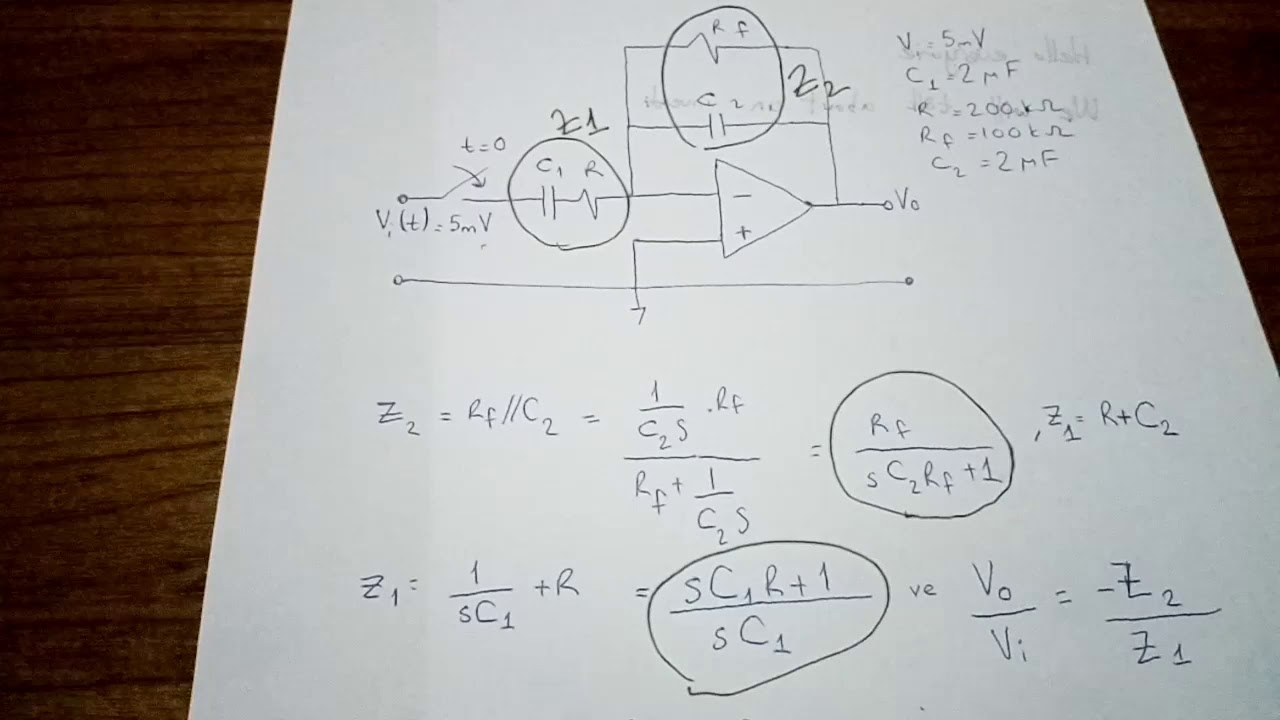 Rf
Z2
C2
Z1
t=0
C1 R
Vi(t)=5mV
−
+
Vo
Vi=5mV
C1=2μF
R=200kΩ
Rf=100kΩ
C2=2μF
Z2 = Rf//C2 = (1/(C2S) .Rf)/(Rf+1/(C2S)) = Rf/(sC2Rf+1) , Z1=R+C2
Z1= 1/(sC1) +R = (sC1R+1)/(sC1) ve Vo/Vi = -Z2/Z1